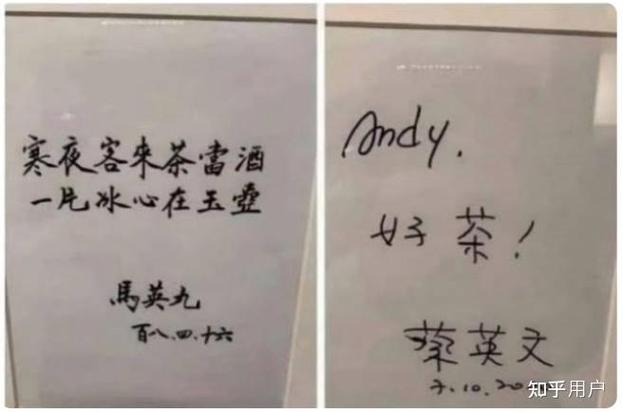 寒夜客來茶當酒
一片冰心在玉壺
馬英九
百八.四.十六
Andy.
好茶!
蔡英文
知乎用户